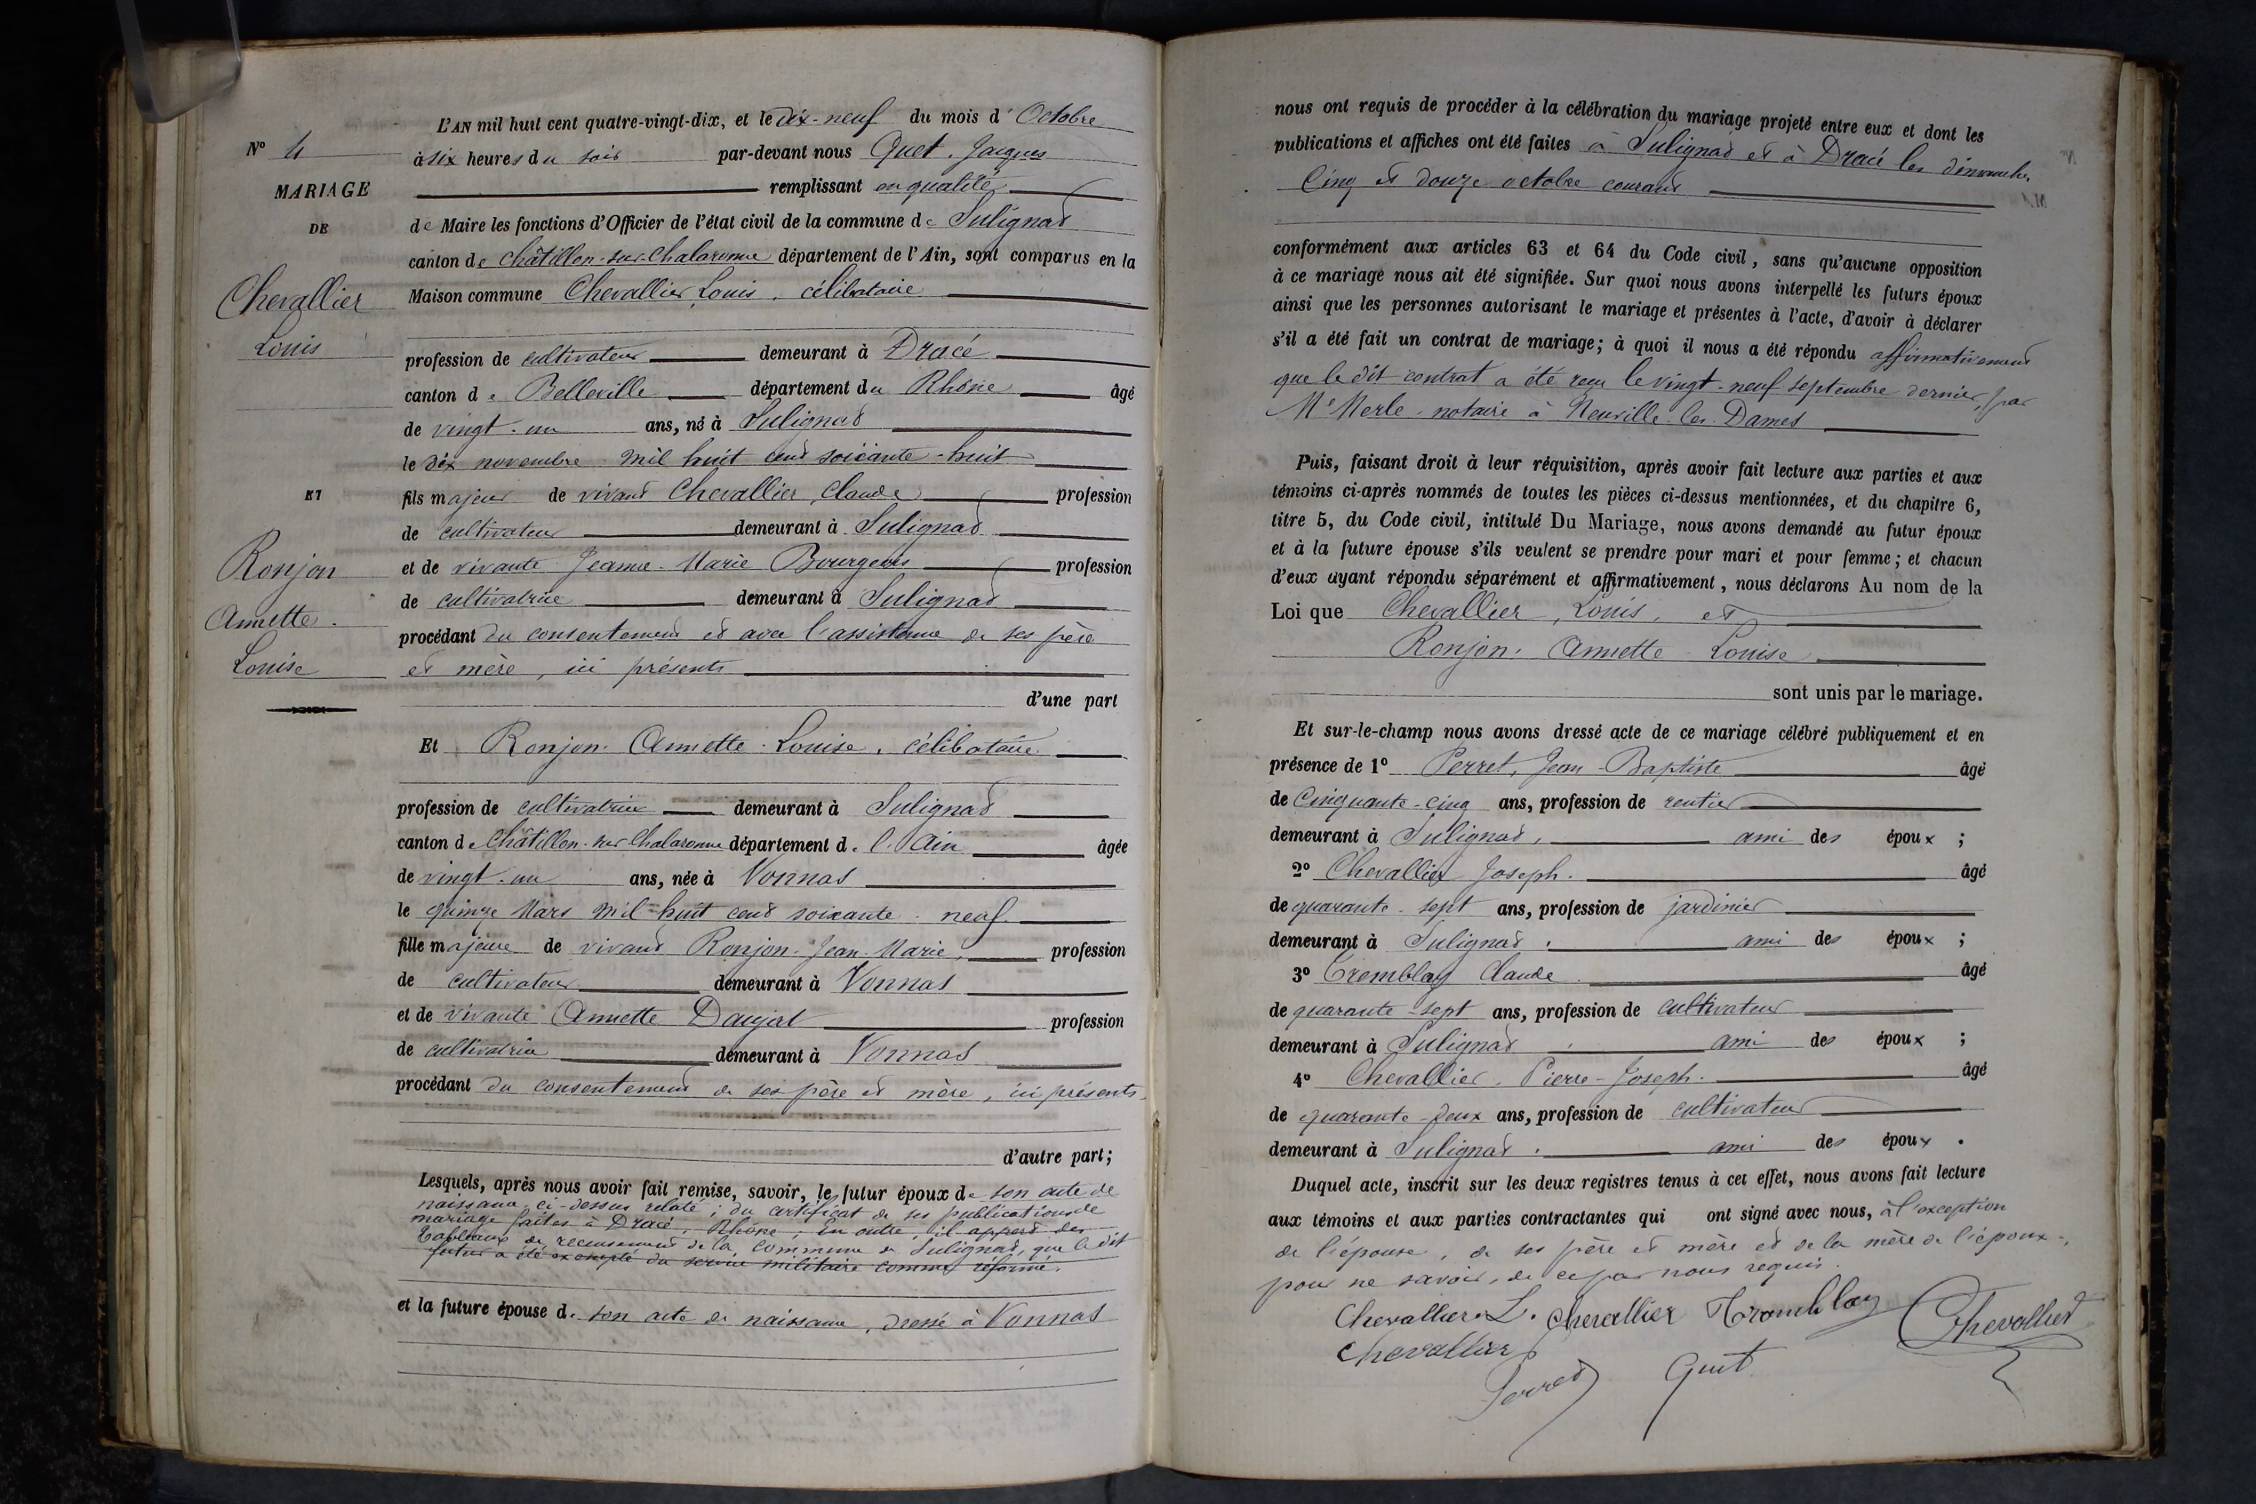 L'AN mil huit cent quatre-vingt-dix, et le dix-neuf du mois d'Octobre
N° 4
à six heures du soir par-devant nous Quet, Jacques
MARIAGE
remplissant en qualité
DE
de Maire les fonctions d'Officier de l'état civil de la commune de Sulignat
canton de Châtillon-sur-Chalaronne département de l'Ain, sont comparus en la
Chevallier
Maison commune Chevallier, Louis, célibataire
Louis
profession de cultivateur demeurant à Dracé
canton de Belleville département du Rhône âgé
de vingt-un ans, né à Sulignat
le dix novembre mil huit cent soixante-huit
ET
fils majeur de vivant Chevallier, Claude profession
de cultivateur demeurant à Sulignat
Ronjon
et de vivante Jeanne-Marie Bourgeois profession
Annette
de cultivatrice demeurant à Sulignat
procédant du consentement et avec l'assistance de ses père
Louise
et mère, ici présents
d'une part
Et Ronjon. Annette-Louise, célibataire
profession de cultivatrice demeurant à Sulignat
canton de Châtillon-sur-Chalaronne département de l'Ain âgée
de vingt-un ans, née à Vonnas
le quinze Mars mil huit cent soixante-neuf
fille majeure de vivant Ronjon-Jean-Marie, profession
de cultivateur demeurant à Vonnas
et de vivante Annette Daujat profession
de cultivatrice demeurant à Vonnas
procédant du consentement de ses père et mère, ici présents
d'autre part;
Lesquels, après nous avoir fait remise, savoir, le futur époux de son acte de
naissance ci-dessus relaté; du certificat de ses publications de
mariage faites à Dracé, Rhône, En outre, il appert des
tableaux de recensement de la commune de Sulignat, que le dit
futur a été exempté du service militaire comme réformé.
et la future épouse de son acte de naissance, dressé à Vonnas
nous ont requis de procéder à la célébration du mariage projeté entre eux et dont les
publications et affiches ont été faites à Sulignat et à Dracé les dimanches
Cinq et douze octobre courant
conformément aux articles 63 et 64 du Code civil, sans qu'aucune opposition
à ce mariage nous ait été signifiée. Sur quoi nous avons interpellé les futurs époux
ainsi que les personnes autorisant le mariage et présentes à l'acte, d'avoir à déclarer
s'il a été fait un contrat de mariage; à quoi il nous a été répondu affirmativement
que le dit contrat a été reçu le vingt-neuf septembre dernier, par
Me Merle, notaire à Neuville-les-Dames
Puis, faisant droit à leur réquisition, après avoir fait lecture aux parties et aux
témoins ci-après nommés de toutes les pièces ci-dessus mentionnées, et du chapitre 6,
titre 5, du Code civil, intitulé Du Mariage, nous avons demandé au futur époux
et à la future épouse s'ils veulent se prendre pour mari et pour femme; et chacun
d'eux ayant répondu séparément et affirmativement, nous déclarons Au nom de la
Loi que Chevallier, Louis, et
Ronjon. Annette-Louise
sont unis par le mariage.
Et sur-le-champ nous avons dressé acte de ce mariage célébré publiquement et en
présence de 1° Perret, Jean-Baptiste âgé
de Cinquante-cinq ans, profession de rentier
demeurant à Sulignat, ami des époux ;
2° Chevallier Joseph. âgé
de quarante-sept ans, profession de jardinier
demeurant à Sulignat. ami des époux ;
3° Tremblay Claude âgé
de quarante-sept ans, profession de cultivateur
demeurant à Sulignat ami des époux ;
4° Chevallier, Pierre-Joseph. âgé
de quarante-deux ans, profession de cultivateur
demeurant à Sulignat. ami des époux .
Duquel acte, inscrit sur les deux registres tenus à cet effet, nous avons fait lecture
aux témoins et aux parties contractantes qui ont signé avec nous, à l'exception
de l'épouse, de ses père et mère et de la mère de l'époux,
pour ne savoir, de ce par nous requis.
Chevallier L. Chevallier Tromblay Chevallier
Chevallier
Perret Quet